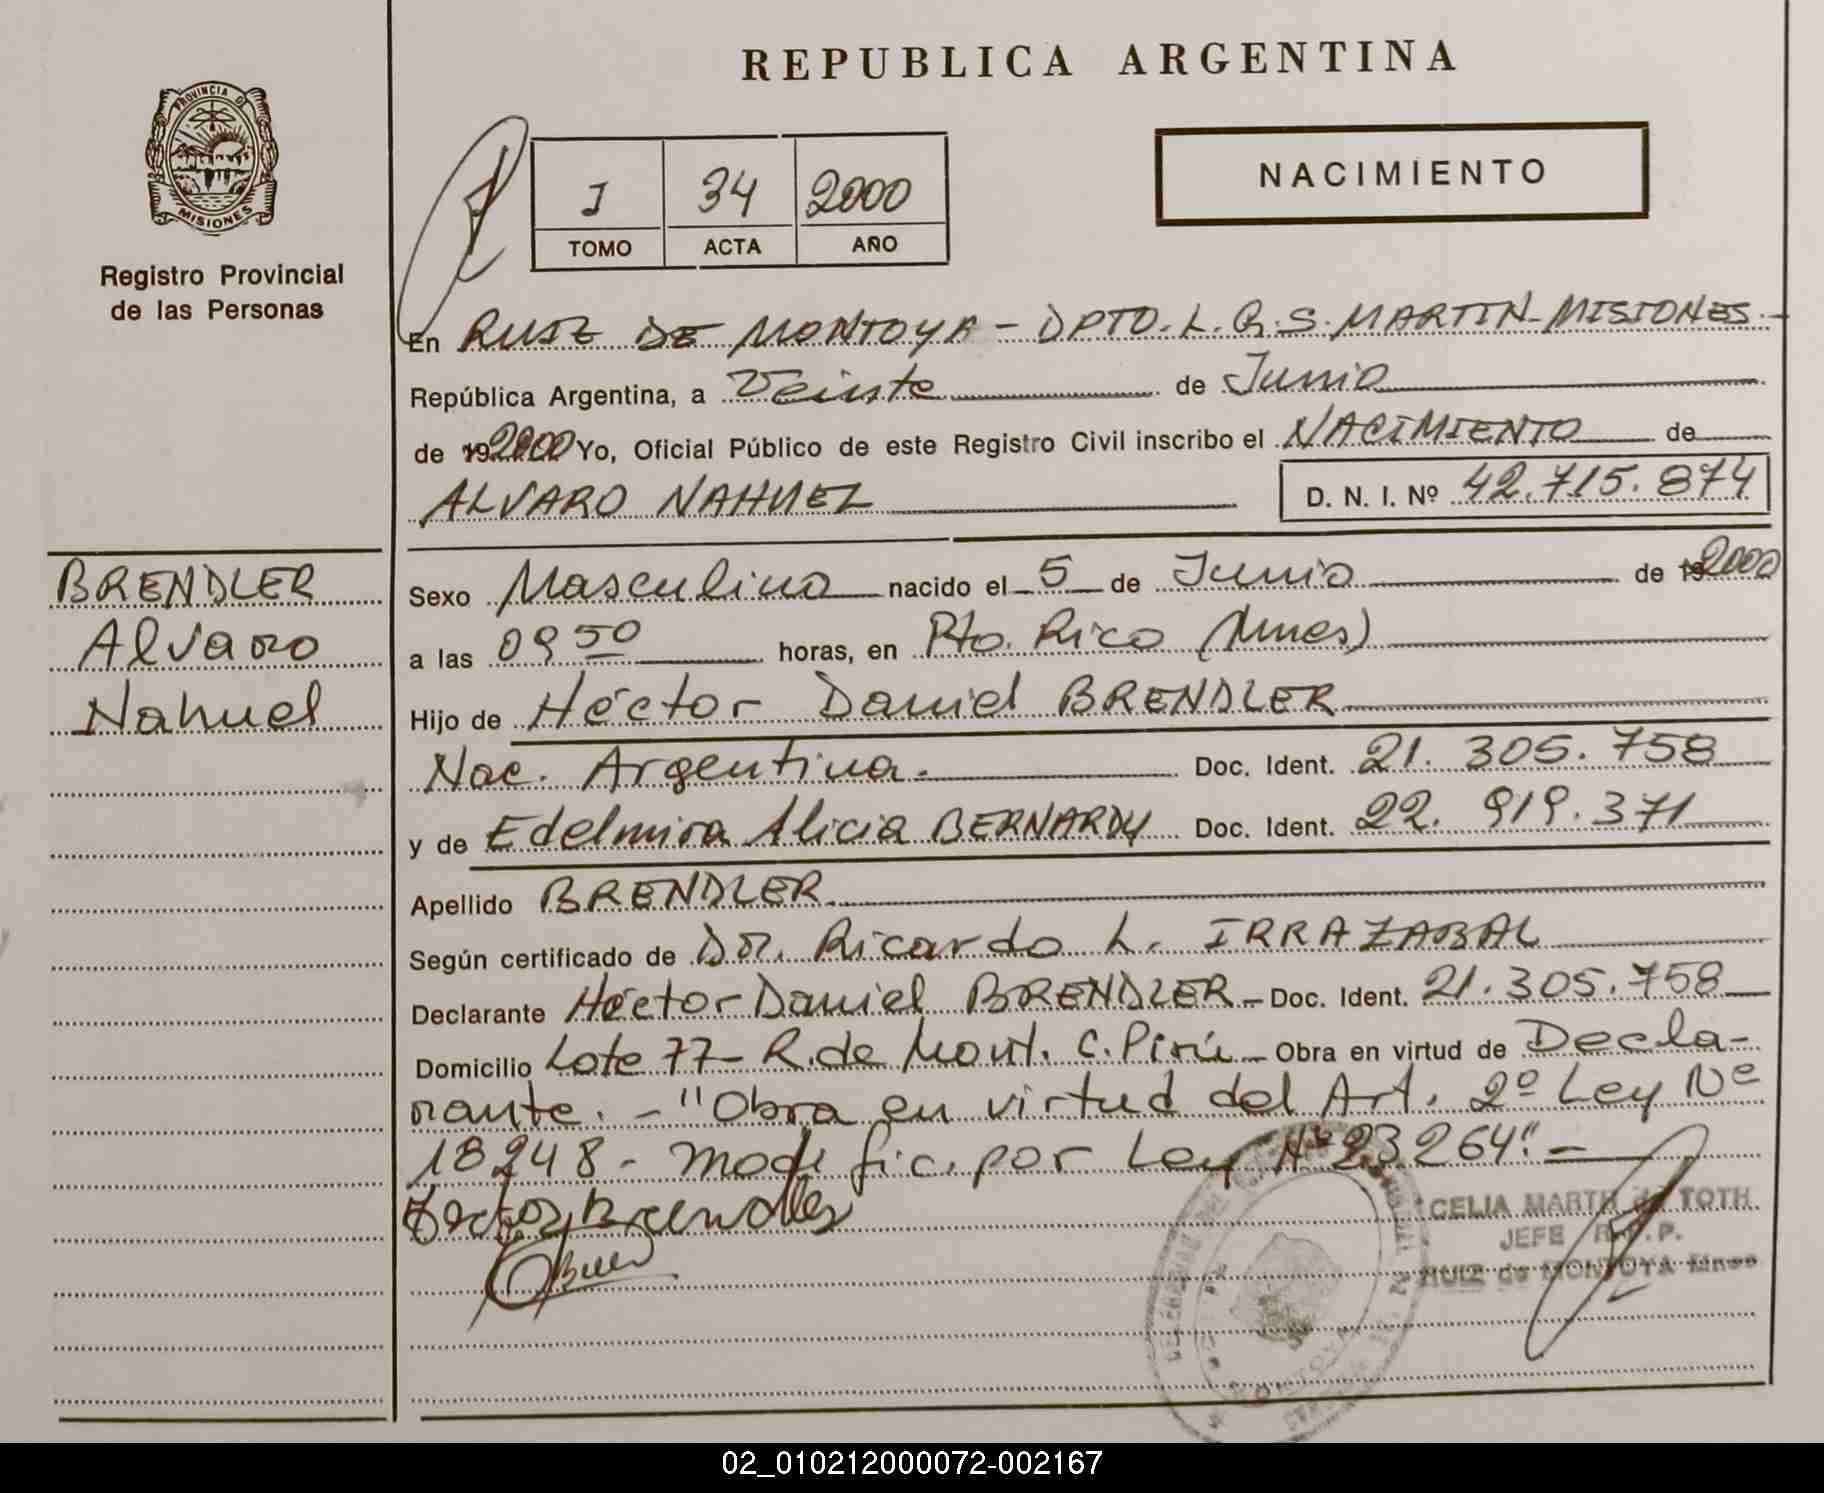 REPUBLICA ARGENTINA
PROVINCIA DE
MISIONES
Registro Provincial
de las Personas
NACIMIENTO
I 34 2000
TOMO ACTA AÑO
En RUIZ DE MONTOYA - DPTO. L. G. S. MARTIN - MISIONES.-
República Argentina, a Veinte de Junio
de 192000 Yo, Oficial Público de este Registro Civil inscribo el NACIMIENTO de
ALVARO NAHUEL D. N. I. Nº 42.715.874
BRENDLER
Alvaro
Nahuel
Sexo Masculino nacido el 5 de Junio de 192000
a las 09 50 horas, en Pto. Rico (Mnes)
Hijo de Héctor Daniel BRENDLER
Nac. Argentina. Doc. Ident. 21. 305. 758
y de Edelmira Alicia BERNARDY Doc. Ident. 22. 919. 371
Apellido BRENDLER
Según certificado de Dr. Ricardo L. IRRAZABAL
Declarante Héctor Daniel BRENDLER - Doc. Ident. 21.305.758
Domicilio Lote 77 - R. de Mont. C. Pirú - Obra en virtud de Decla-
rante. - "Obra en virtud del Art. 2º Ley Nº
18248 - Modific. por Ley Nº 23.264". -
Hector Brendler
CELIA MARTH de TOTH
JEFE R.P.P.
RUIZ de MONTOYA Mnes
02_010212000072-002167